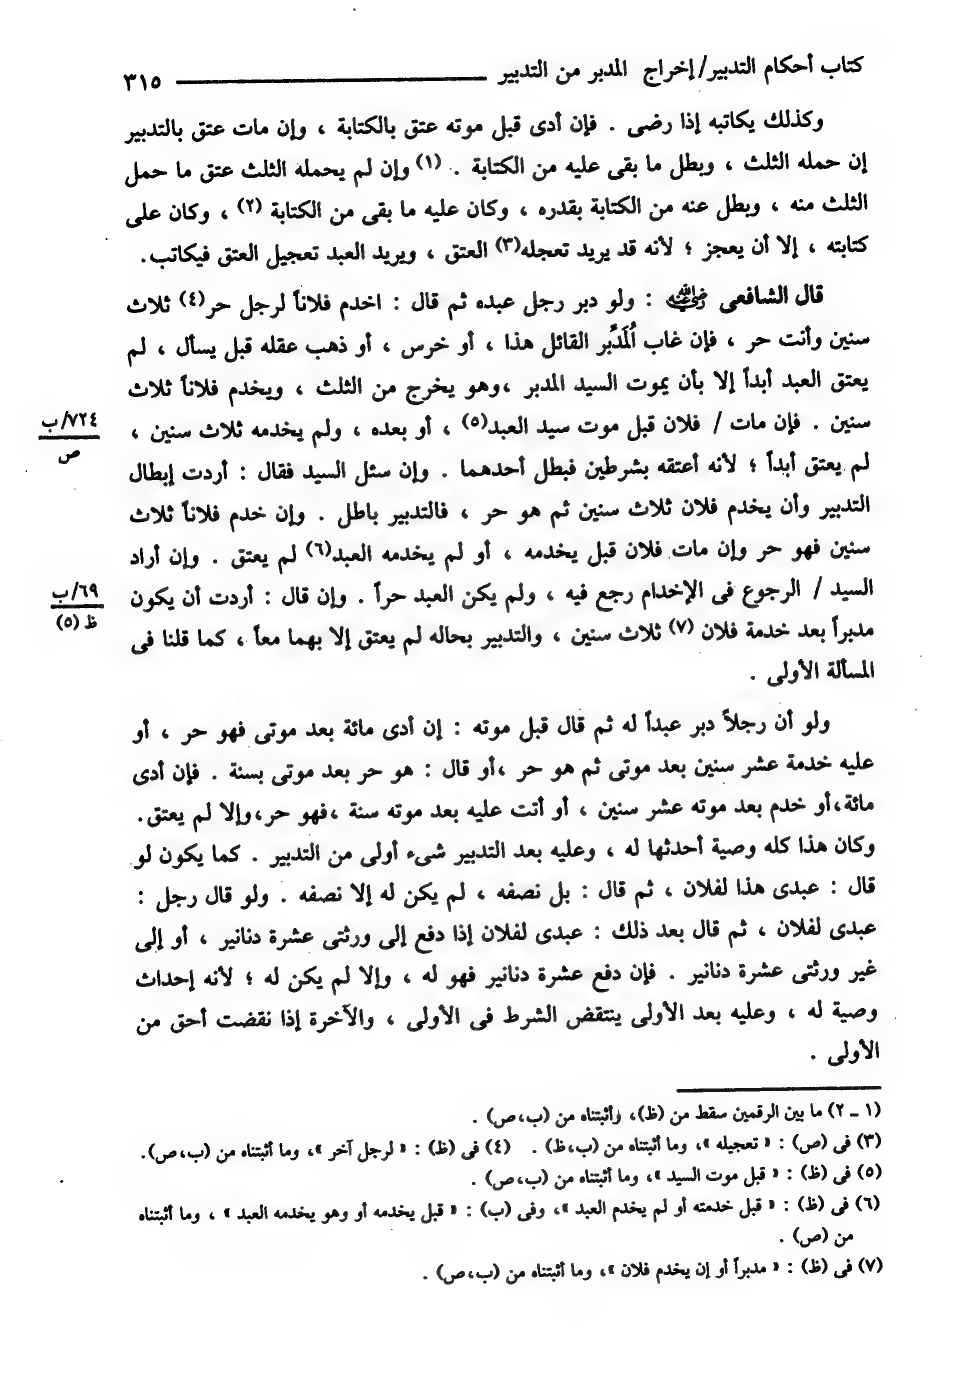 كتاب أحكام التدبير/إخراج المدبر من التدبير ٣١٥
وكذلك يكاتبه إذا رضى . فإن أدى قبل موته عتق بالكتابة ، وإن مات عتق بالتدبير
إن حمله الثلث ، وبطل ما بقى عليه من الكتابة . (١) وإن لم يحمله الثلث عتق ما حمل
الثلث منه ، وبطل عنه من الكتابة بقدره ، وكان عليه ما بقى من الكتابة (٢) ، وكان على
كتابته ، إلا أن يعجز ؛ لأنه قد يريد تعجله(٣) العتق ، ويريد العبد تعجيل العتق فيكاتب.
قال الشافعى رضي الله عنه : ولو دبر رجل عبده ثم قال : اخدم فلاناً لرجل حر(٤) ثلاث
سنين وأنت حر ، فإن غاب اُلمَدبَّر القائل هذا ، أو خرس ، أو ذهب عقله قبل يسأل ، لم
يعتق العبد أبداً إلا بأن يموت السيد المدبر ،وهو يخرج من الثلث ، ويخدم فلاناً ثلاث
سنين . فإن مات / فلان قبل موت سيد العبد(٥) ، أو بعده ، ولم يخدمه ثلاث سنين ،
٧٢٤/ب
ص
لم يعتق أبداً ؛ لأنه أعتقه بشرطين فبطل أحدهما . وإن سئل السيد فقال : أردت إبطال
التدبير وأن يخدم فلان ثلاث سنين ثم هو حر ، فالتدبير باطل . وإن خدم فلاناً ثلاث
سنين فهو حر وإن مات فلان قبل يخدمه ، أو لم يخدمه العبد(٦) لم يعتق . وإن أراد
السيد / الرجوع فى الإخدام رجع فيه ، ولم يكن العبد حراً . وإن قال : أردت أن يكون
٦٩/ب
ظ (٥)
مدبراً بعد خدمة فلان (٧) ثلاث سنين ، والتدبير بحاله لم يعتق إلا بهما معاً ، كما قلنا فى
المسألة الأولى .
ولو أن رجلاً دبر عبداً له ثم قال قبل موته : إن أدى مائة بعد موتى فهو حر ، أو
عليه خدمة عشر سنين بعد موتى ثم هو حر ،أو قال : هو حر بعد موتى بسنة . فإن أدى
مائة،أو خدم بعد موته عشر سنين ، أو أتت عليه بعد موته سنة ،فهو حر،وإلا لم يعتق.
وكان هذا كله وصية أحدثها له ، وعليه بعد التدبير شىء أولى من التدبير . كما يكون لو
قال : عبدى هذا لفلان ، ثم قال : بل نصفه ، لم يكن له إلا نصفه . ولو قال رجل :
عبدى لفلان ، ثم قال بعد ذلك : عبدى لفلان إذا دفع إلى ورثتى عشرة دنانير ، أو إلى
غير ورثتى عشرة دنانير . فإن دفع عشرة دنانير فهو له ، وإلا لم يكن له ؛ لأنه إحداث
وصية له ، وعليه بعد الأولى ينتقض الشرط فى الأولى ، والآخرة إذا نقضت أحق من
الأولى .
(١ ـ ٢) ما بين الرقمين سقط من (ظ)، وأثبتناه من (ب،ص) .
(٣) فى (ص) : « تعجيله »، وما أثبتناه من (ب،ظ) . (٤) فى (ظ) : « لرجل آخر »، وما أثبتناه من (ب،ص).
(٥) فى (ظ) : « قبل موت السيد »، وما أثبتناه من (ب،ص) .
(٦) فى (ظ) : « قبل خدمته أو لم يخدم العبد »، وفى (ب) : « قبل يخدمه أو وهو يخدمه العبد » ، وما أثبتناه
من (ص) .
(٧) فى (ظ) : « مدبراً أو إن يخدم فلان »، وما أثبتناه من (ب،ص) .